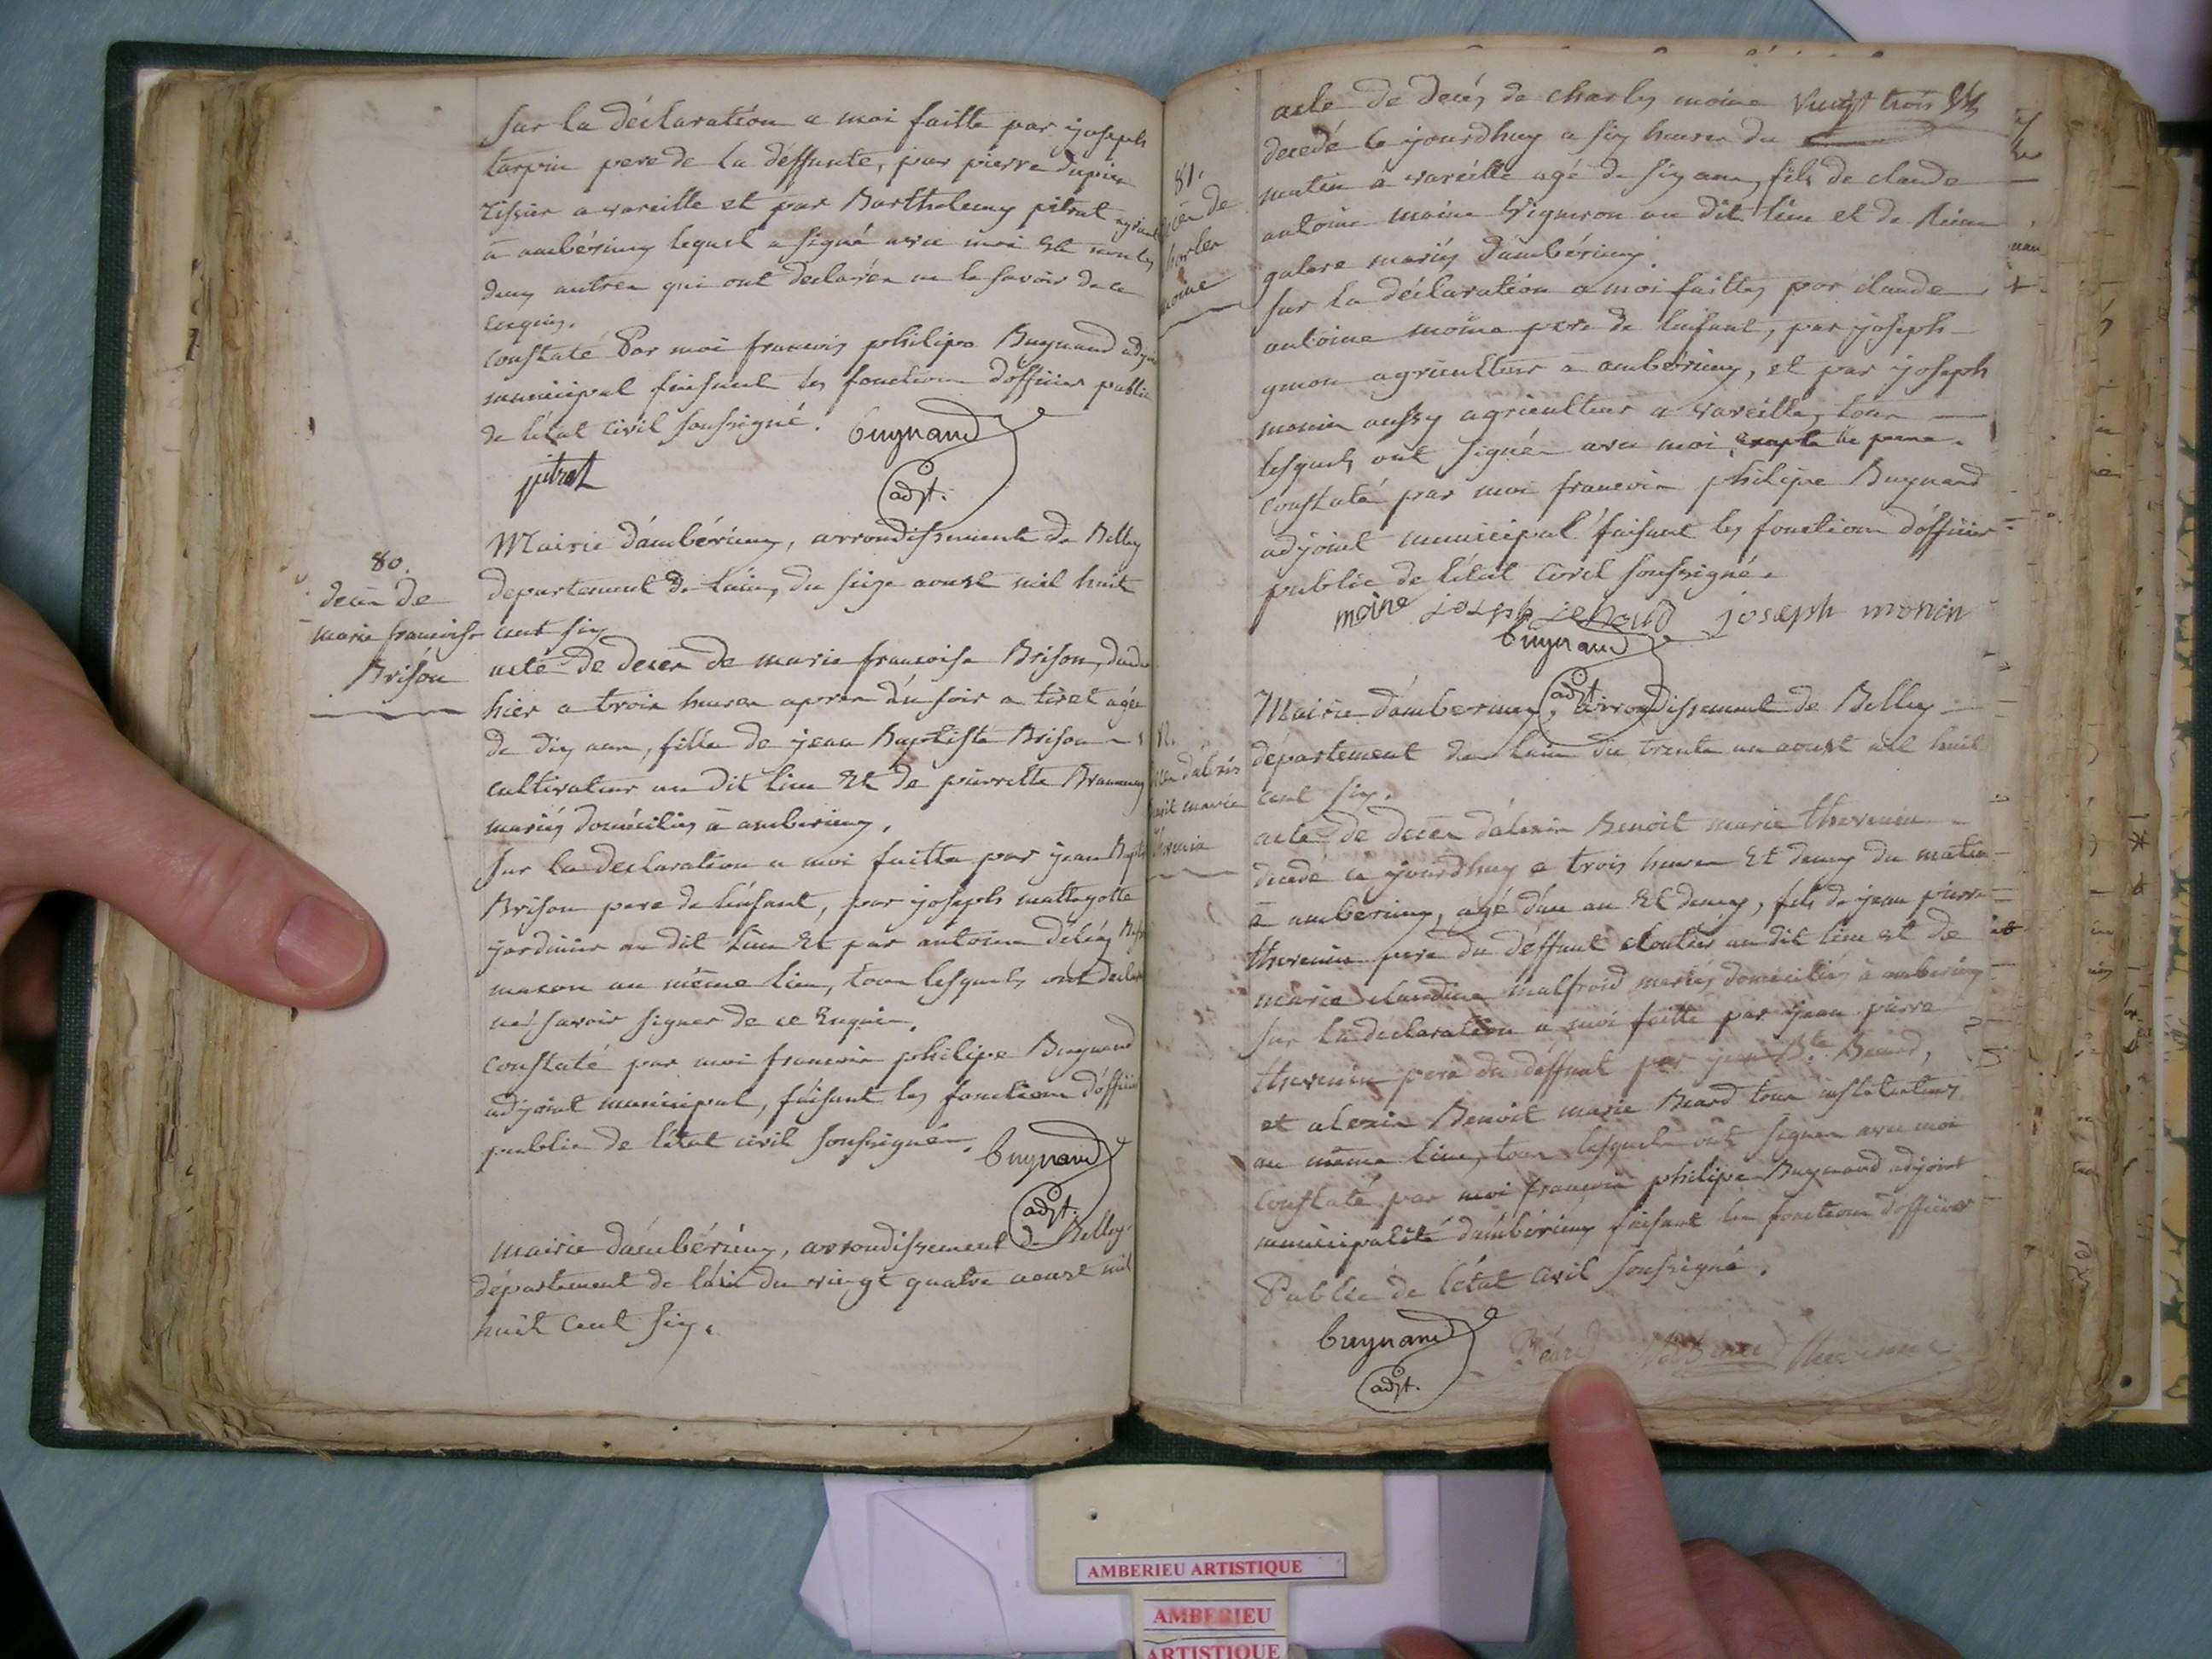 Sur la déclaration a moi faitte par joseph
tarpin pere de la déffunte, par pierre dupin
Tissier a vareille et par Barthelemy pitrat
a ambérieuy lequel a signé avec moi Et non les
deux autres qui ont declarés ne le savoir de ce
enquis.
Constaté Par moi francois philipe Buynand
municipal faisant les fonctions d'officier public
de l'état civil soussigné. buynand
pitrat
adjt.
80.
decès de
marie francoise
Brison
Mairie d'ambérieuy, arrondissement de Belley
departement de lain, du seize aoust mil huit
cent six
acte de deces de marie francoise Brison,
hier a trois heures apres du soir a tiret agée
de dix ans, fille de jean Baptiste Brison
cultivateur au dit lieu Et de pierrette
mariés domiciliés a amberieuy.
Sur la declaration a moi faitte par jean
Brison pere de l'enfant, par joseph mattegotte
jardinier au dit lieu Et par antoine
macon au même lieu, tous lesquels ont
ne savoir signer de ce Enquis.
Constaté par moi francois philipe Buynand
adjoint municipal, faisant les fonctions d'officier
public de l'état civil soussigné. buynand
adjt.
mairie d'ambérieuy, arrondissement de Belley
département de l'ain du vingt quatre aoust mil
huit cent six.
81.
de
charles
moine
acte de decés de charles moine vingt trois
decedé ce jourdhuy a six heures du
matin a vareille agé de six ans, fils de claude
antoine moine Vigneron au dit lieu et de
galare mariés d'ambérieuy.
Sur la déclaration a moi faittes par claude
antoine moine pere de l'enfant, par joseph
agriculteur a ambérieuy, et par joseph
monin aussy agriculteur a vareille, tous
lesquels ont signés avec moi, exepté le
Constaté par moi francois philipe Buynand
adjoint municipal faisant les fonctions d'officier
public de l'état civil soussigné.
moine joseph joseph monin
buynand
adjt.
d'alexis
benoit marie
thevenin
Mairie d'amberieuy, arrondissement de Belley
département de lain du trente un aoust mil huit
cent six.
acte de deces d'alexis Benoit marie thevenin
decedé ce jourdhuy a trois heures Et demy du matin
a amberieuy, agé d'un an Et demy, fils de jean pierre
thevenin pere du déffunt cloutier au dit lieu et de
marie claudine malfroid mariés domiciliés à amberieuy
Sur la declaration a moi faitte par jean pierre
thevenin pere du déffunt par jean Bte Beard,
et alexis Benoit marie Beard tous instituteurs
au même lieu, tous lesquels ont signer avec moi
Constaté par moi francois philipe Buynand adjoint
municipalité d'ambérieuy faisant les fonctions d'officier
Public de l'état civil soussigné.
buynand
adjt.
AMBERIEU ARTISTIQUE
AMBERIEU
ARTISTIQUE